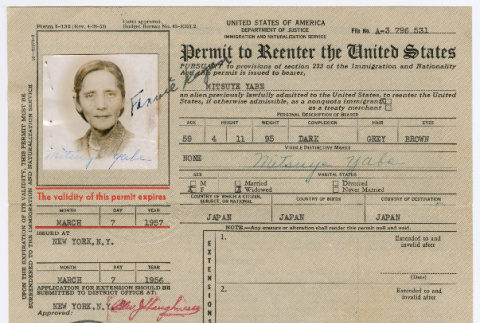 Form I-132 (Rev. 4-19-55)
Form approved.
Budget Bureau No. 43-R312.2
UNITED STATES OF AMERICA
DEPARTMENT OF JUSTICE
IMMIGRATION AND NATURALIZATION SERVICE
File No. A-3 796 531
Permit to Reenter the United States
PURSUANT to provisions of section 223 of the Immigration and Nationality
Act this permit is issued to bearer,
MITSUYE YABE
an alien previously lawfully admitted to the United States, to reenter the United
States, if otherwise admissible, as a nonquota immigrant
as a treaty merchant
PERSONAL DESCRIPTION OF BEARER
AGE HEIGHT WEIGHT COMPLEXION HAIR EYES
59 4 11 95 DARK GREY BROWN
VISIBLE DISTINCTIVE MARKS
NONE
Mitsuye Yabe
SEX MARITAL STATUS
M Married Divorced
F Widowed Never Married
COUNTRY OF WHICH A CITIZEN, SUBJECT, OR NATIONAL
COUNTRY OF BIRTH
COUNTRY OF DESTINATION
JAPAN JAPAN JAPAN
NOTE.—Any erasure or alteration shall render this permit null and void.
EXTENSIONS
1.
Extended to and
invalid after
(Date)
2.
Extended to and
invalid after
UPON THE EXPIRATION OF ITS VALIDITY, THIS PERMIT MUST BE
SURRENDERED TO THE IMMIGRATION AND NATURALIZATION SERVICE
Mitsuye Yabe
The validity of this permit expires
MONTH DAY YEAR
MARCH 7 1957
ISSUED AT
NEW YORK, N.Y.
MONTH DAY YEAR
MARCH 7 1956
APPLICATION FOR EXTENSION SHOULD BE
SUBMITTED TO DISTRICT OFFICE AT:
NEW YORK, N.Y.
Approved: